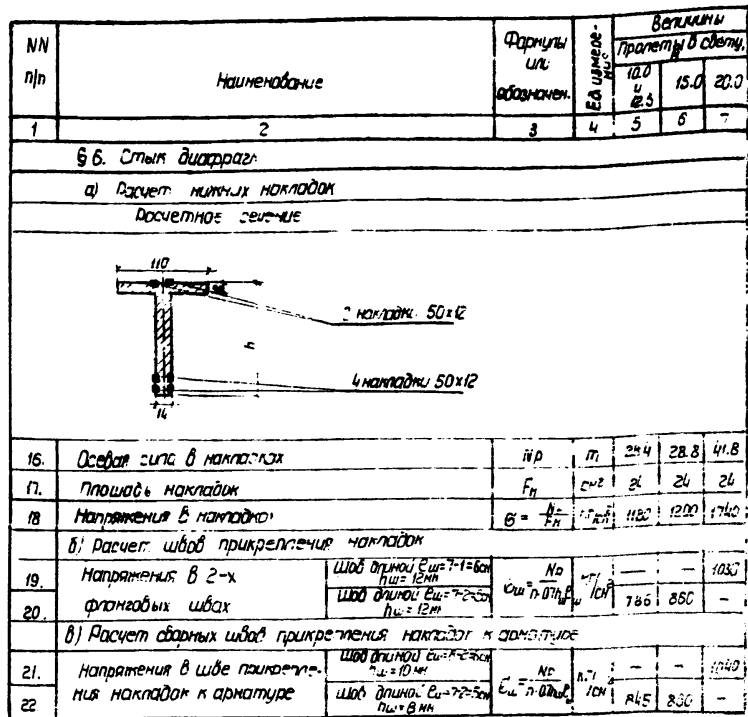 NN п/п
Наименование
Формулы или обозначен.
Ед. измере-ния
Величины
Пролеты в свету, м
10.0 и 12.5
15.0
20.0
1 2 3 4 5 6 7
§ 6. Стык диафрагм
а) Расчет нижних накладок
Расчетное сечение
110
2 накладки 50х12
h
4 накладки 50х12
14
16. Осевая сила в накладках Nр т 28.8 41.8
17. Площадь накладок Fн см² 24 24 24
18 Напряжения в накладках 1200 1740
б) Расчет швов прикрепления накладок
19. Напряжения в 2-х Шов длиной ℓш=7-1=6см hш=12мм — —
20. фланговых швах Шов длиной ℓш=7-2=5см hш=12мм 860 —
в) Расчет сварных швов прикрепления накладок к арматуре
21. Напряжения в шве прикрепле- Шов длиной hш=10мм — —
22 ния накладок к арматуре Шов длиной ℓш=7-2=5см hш=8мм 845 —